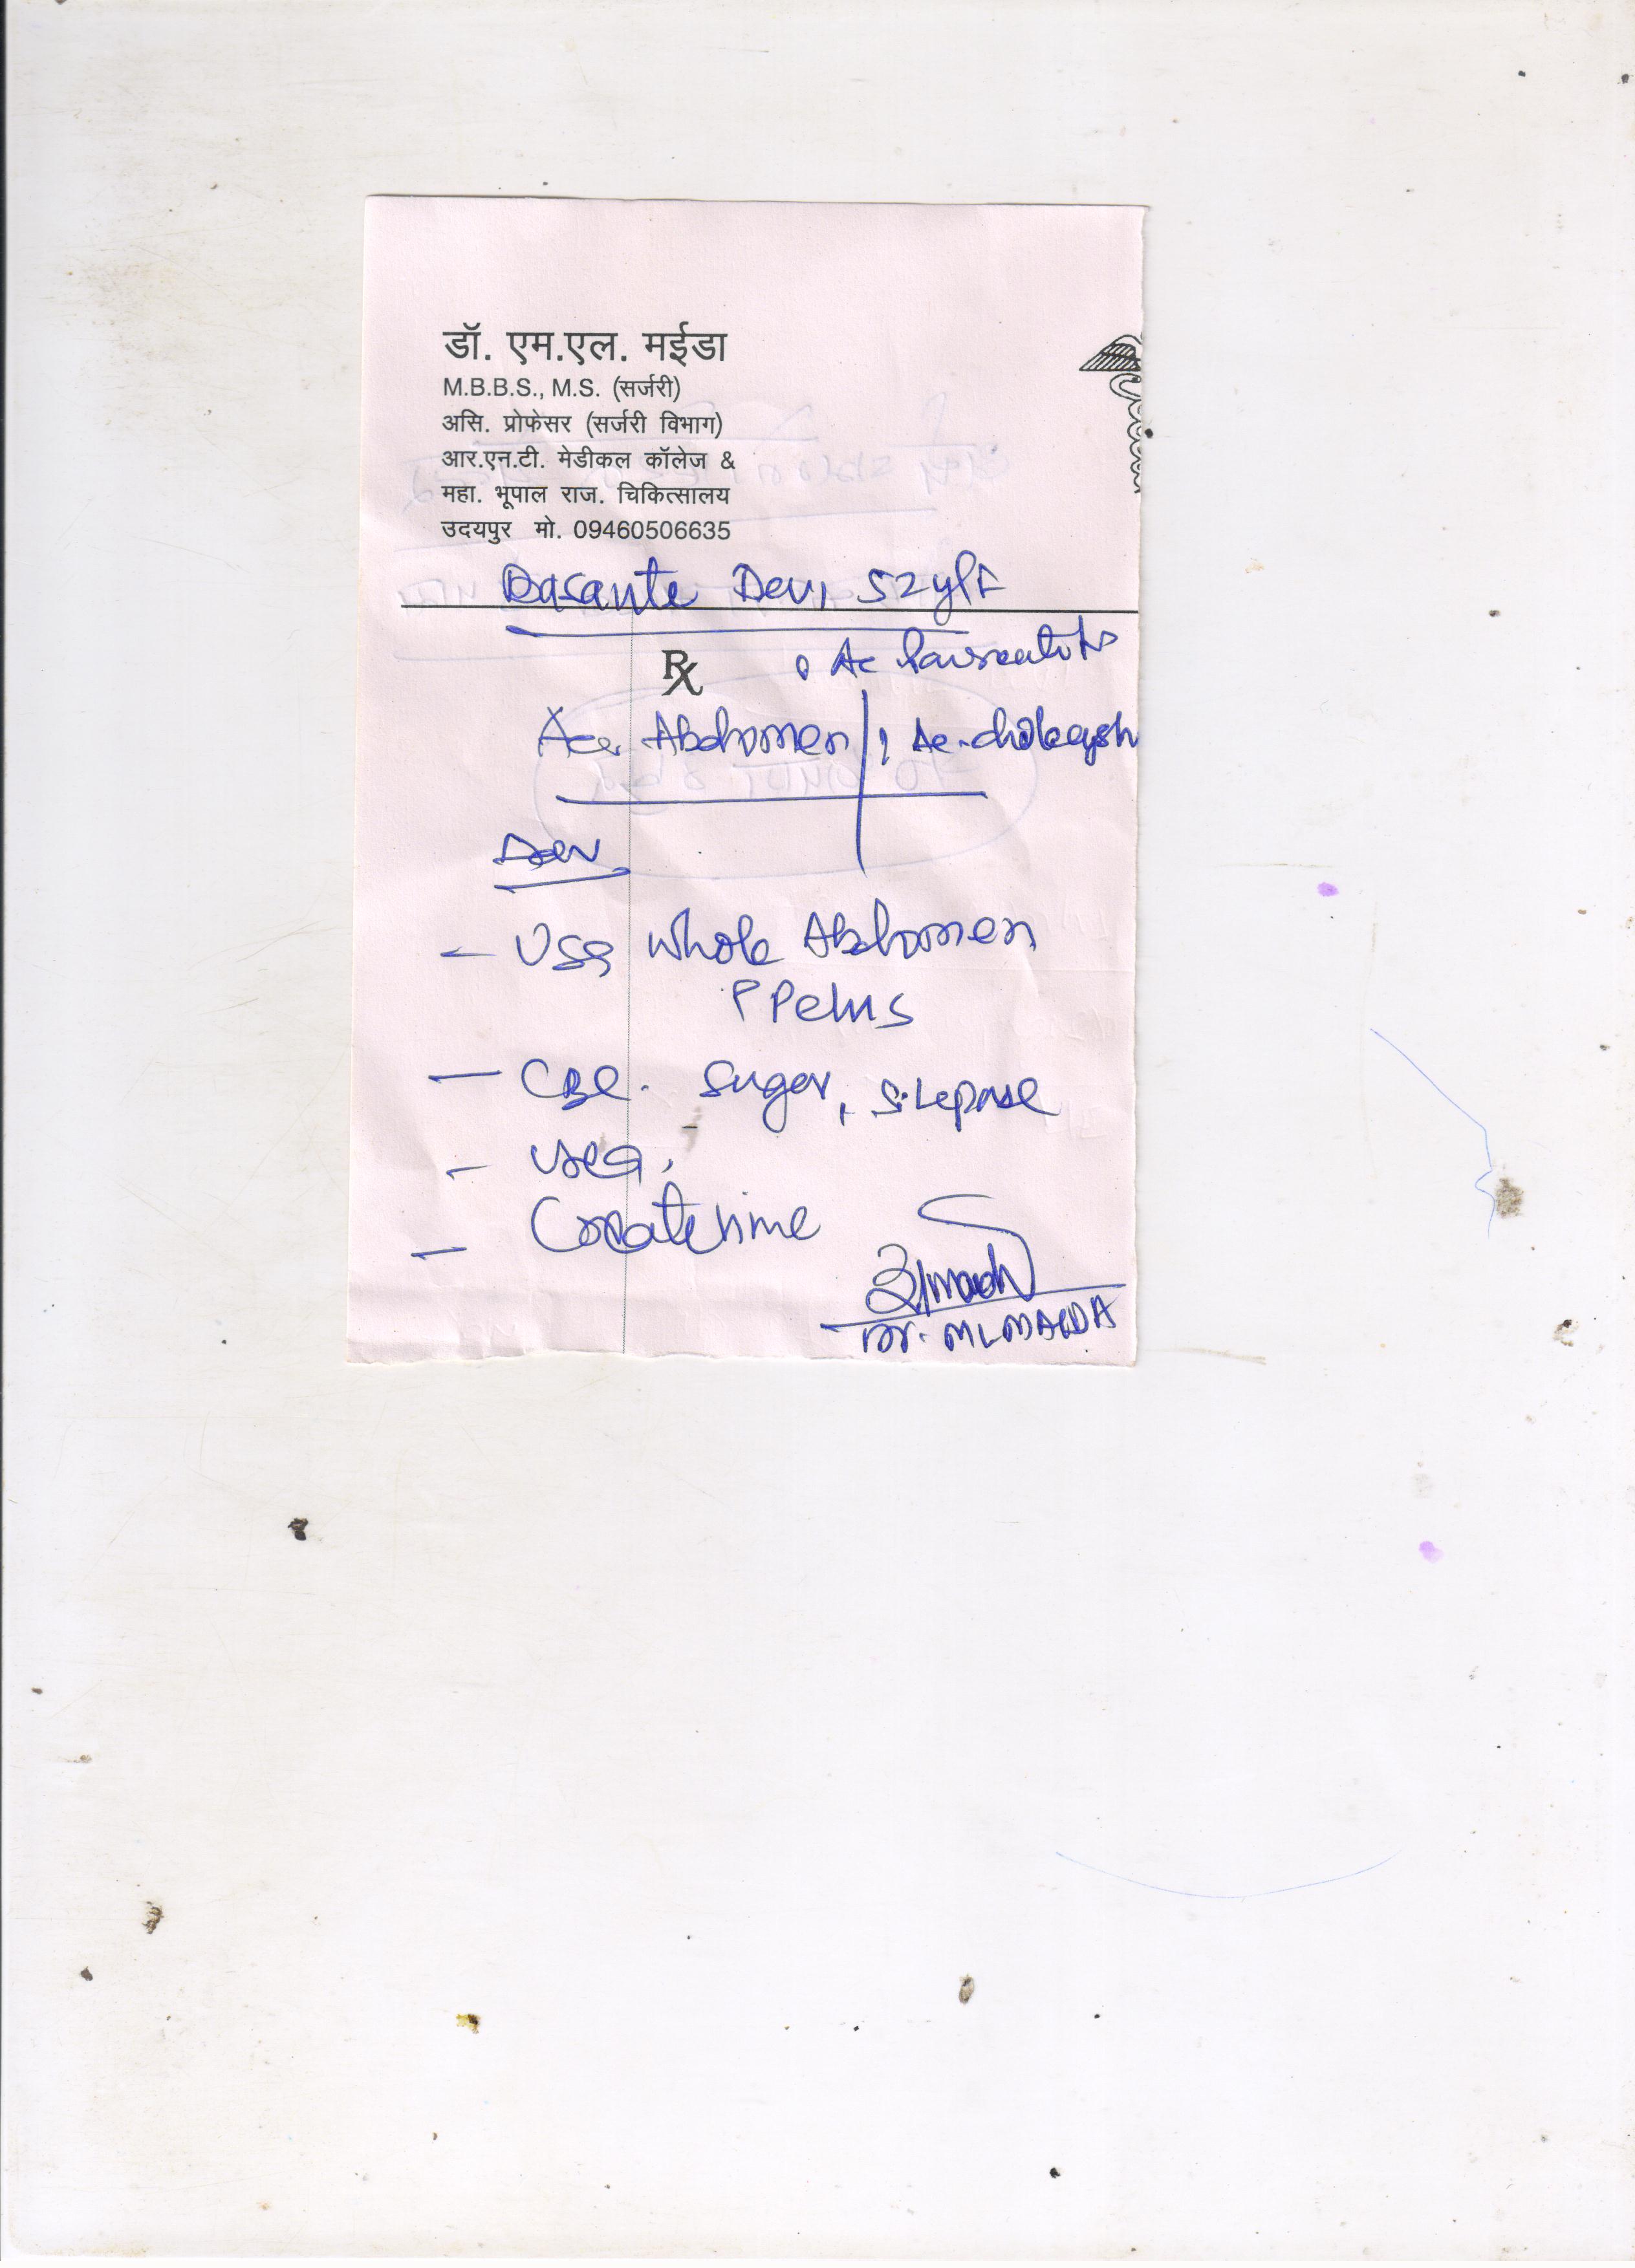 डॉ. एम.एल. मईडा
M.B.B.S., M.S. (सर्जरी)
असि. प्रोफेसर (सर्जरी विभाग)
आर.एन.टी. मेडीकल कॉलेज &
महा. भूपाल राज. चिकित्सालय
उदयपुर मो. 09460506635
Basante Devi 52y/F
Rx ? Ac
Abdomen / ? Ac.
Adv
- USG Whole Abdomen
Pelvis
- CBC. Sugar, S. Lepase
- Urea,
- Creatinine
Dr. ML MAIDA